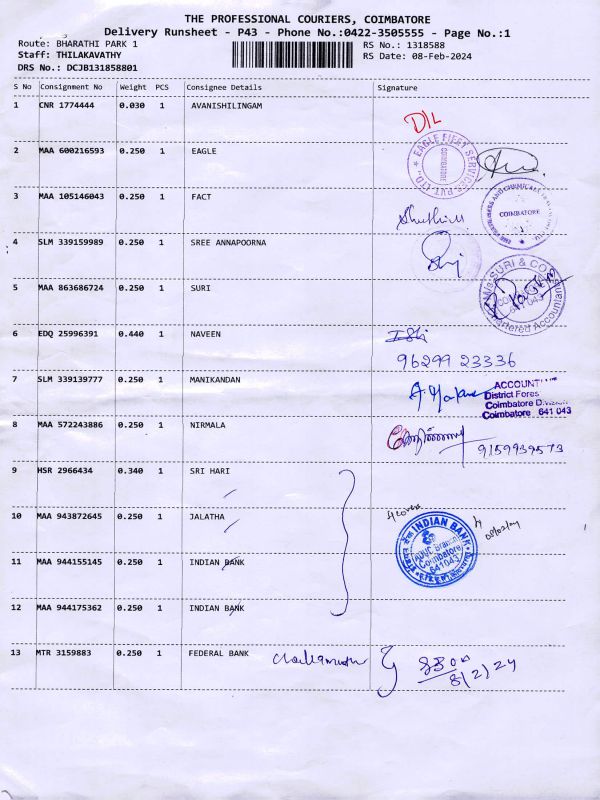 THE PROFESSIONAL COURIERS, COIMBATORE
Delivery Runsheet - P43 - Phone No.:0422-3505555 - Page No.:1
Route: BHARATHI PARK 1 RS No.: 1318588
Staff: THILAKAVATHY RS Date: 08-Feb-2024
DRS No.: DCJB131858801
S No Consignment No Weight PCS Consignee Details Signature
1 CNR 1774444 0.030 1 AVANISHILINGAM
D/L
2 MAA 600216593 0.250 1 EAGLE
EAGLE FIRST SERVICES PVT LTD.
COIMBATORE
3 MAA 105146043 0.250 1 FACT
COIMBATORE
4 SLM 339159989 0.250 1 SREE ANNAPOORNA
5 MAA 863686724 0.250 1 SURI
M/s. SURI & CO.
641 043
Chartered Accountants
6 EDQ 25996391 0.440 1 NAVEEN
96299 23336
7 SLM 339139777 0.250 1 MANIKANDAN
ACCOUNT
District Fores
Coimbatore Division
Coimbatore 641 043
8 MAA 572243886 0.250 1 NIRMALA
9159939573
9 HSR 2966434 0.340 1 SRI HARI
10 MAA 943872645 0.250 1 JALATHA
4 covers
INDIAN BANK
AUUC Branch
Coimbatore
641043
11 MAA 944155145 0.250 1 INDIAN BANK
12 MAA 944175362 0.250 1 INDIAN BANK
13 MTR 3159883 0.250 1 FEDERAL BANK
8/2/24